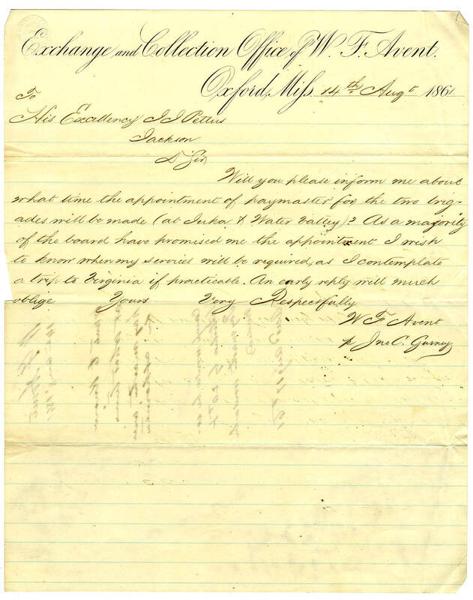 Exchange and Collection Office of W. F. Avent.
Oxford, Miss. 14th Augt 1861
To
His Excellency J J Pettus
Jackson
D Sir
Will you please inform me about
what time the appointment of paymaster for the two brig-
ades will be made (at Iuka & Water Valley)? As a majority
of the board have promised me the appointment I wish
to know when my services will be required, as I contemplate
a trip to Virginia if practicable. An early reply will much
oblige Yours Very Respectfully
W F Avent
Jno C.